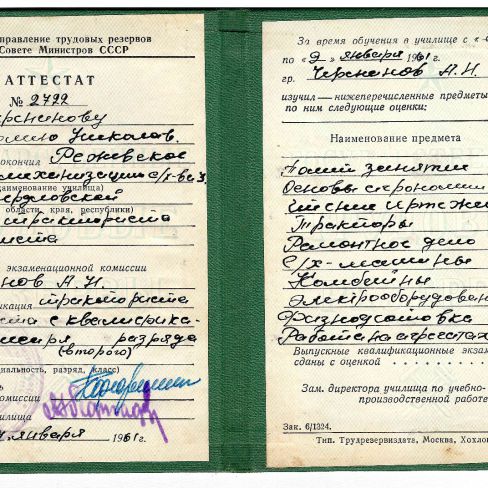 управление трудовых резервов
Совете Министров СССР
АТТЕСТАТ
№ 2722
Николаев.
окончил Режевское
механизации с/х-ва
(наименование училища)
Свердловской
области, края, республики)
тракториста
экзаменационной комиссии
нов А. Н.
тракториста
с квалифика-
разряда
(второго)
(специальность, разряд, класс)
комиссии
училища
января 1961г.
За время обучения в училище с «
по «9» января 1961г.
гр. А. Н.
изучил — нижеперечисленные предметы
по ним следующие оценки:
Наименование предмета
Полит занятия
Основы агрономии
Чтение чертежей
Тракторы
Ремонтное дело
С/х-машины
Комбайны
Электрооборудован
Физподготовка
Работа на агрегатах
Выпускные квалификационные экзам
сданы с оценкой
Зам. директора училища по учебно-
производственной работе
Зак. 6/1324.
Тип. Трудрезервиздата, Москва, Хохлов